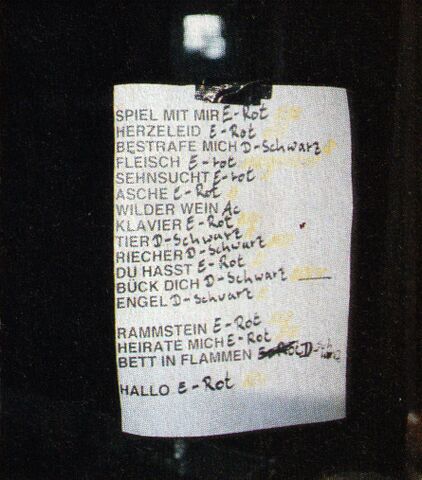 SPIEL MIT MIR E-Rot
HERZELEID E-Rot
BESTRAFE MICH D-Schwarz
FLEISCH E-rot
SEHNSUCHT E-rot
ASCHE E-Rot
WILDER WEIN Ac
KLAVIER E-Rot
TIER D-Schwarz
RIECHER D-Schwarz
DU HASST E-Rot
BÜCK DICH D-Schwarz
ENGEL D-Schwarz
RAMMSTEIN E-Rot
HEIRATE MICH E-Rot
BETT IN FLAMMEN E-Rot
HALLO E-Rot